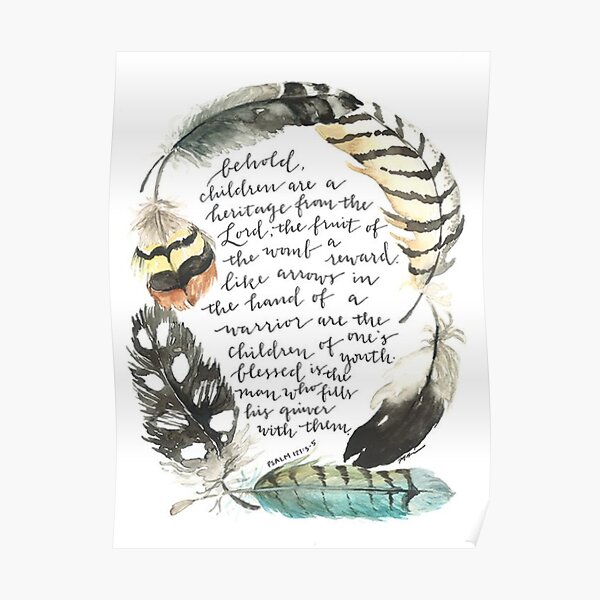 behold,
children are a
heritage from the
Lord, the fruit of
the womb a reward.
like arrows in
the hand of a
warrior are the
children of one's
youth.
blessed is the
man who fills
his quiver
with them
PSALM 127:3-5